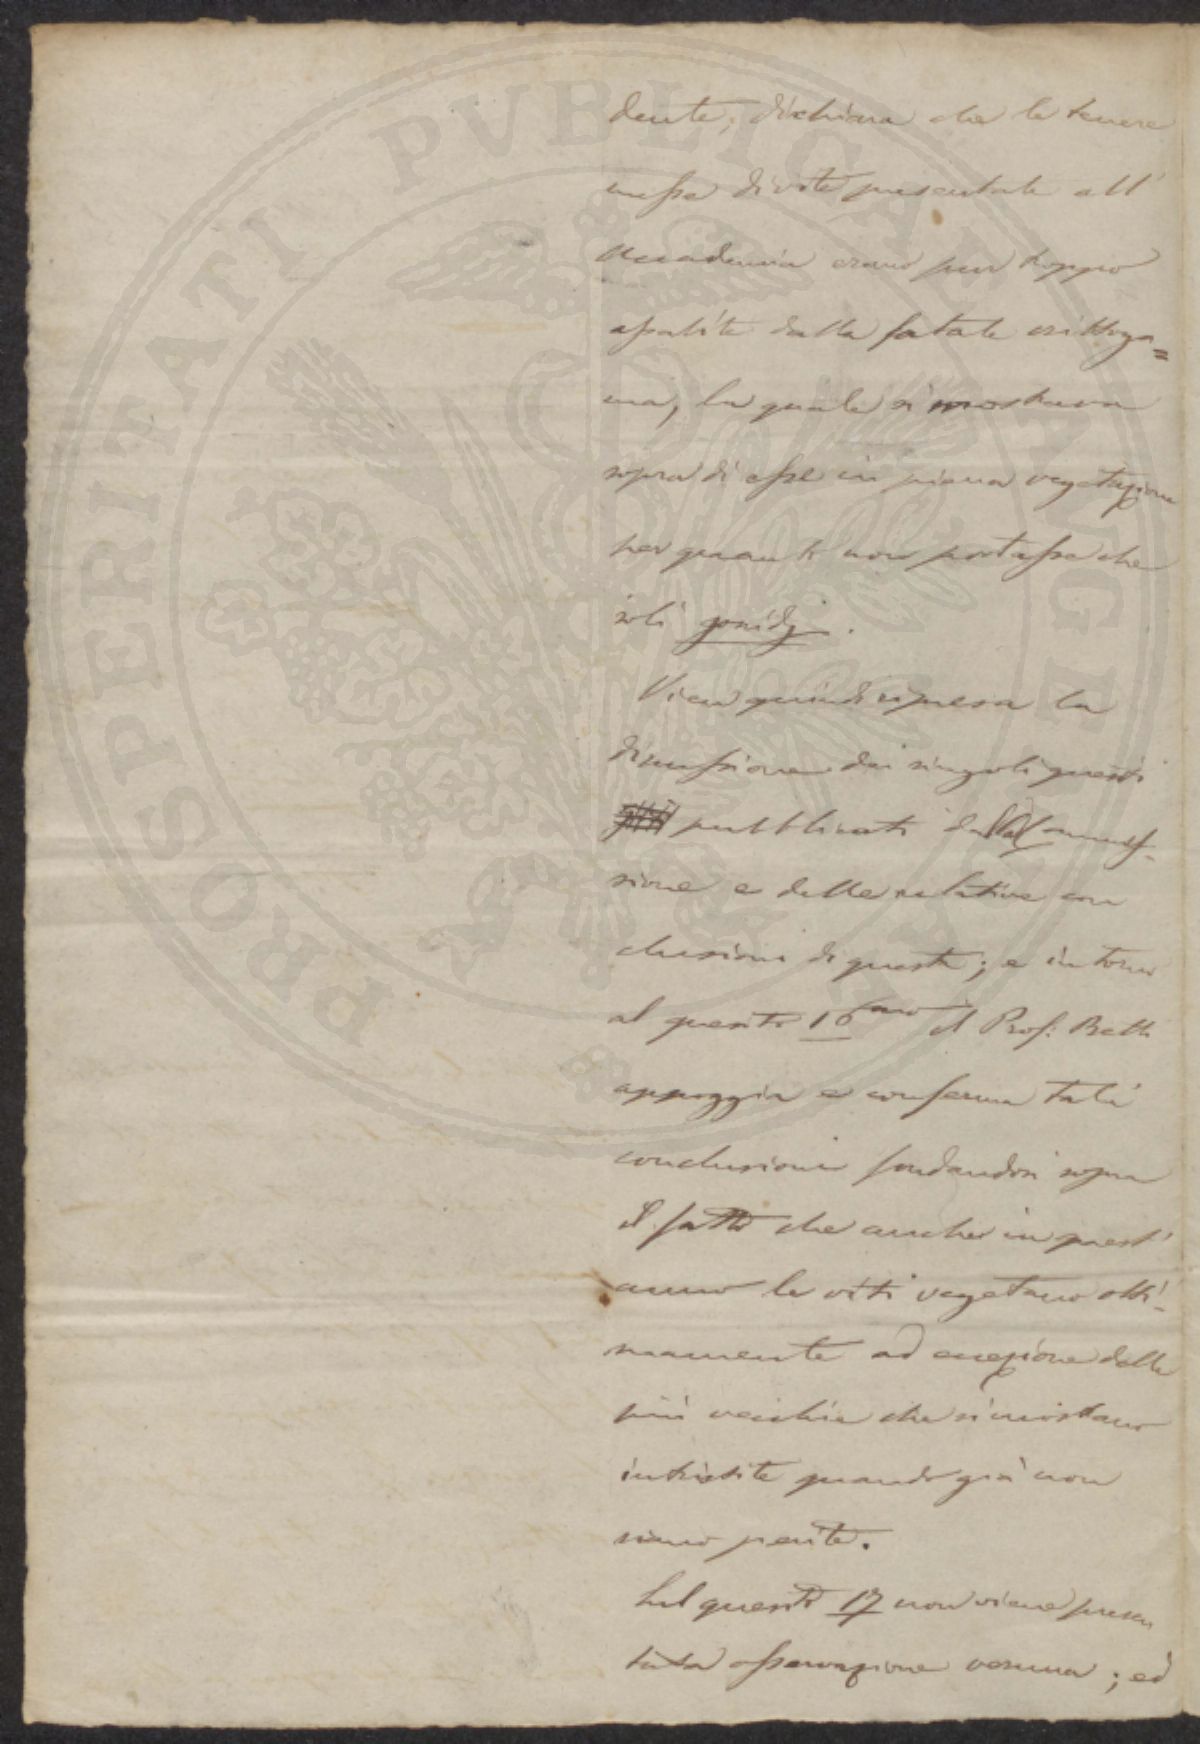 dente, dichiara che le tenere
messe di vite presentate all'
Accademia erano pur troppo
assalite dalla fatale crittoga=
ma, la quale si mostrava
sopra di esse in piena vegetazione
per quanto non portasse che
soli gonidj.
Vien quindi ripresa la
discussione dei singoli quesiti
pubblicati dalla Commes-
sione e delle relative con
clusioni di questa; e intorno
al quesito 16mo il Prof: Betti
appoggia e conferma tali
conclusioni fondandosi sopra
il fatto che anche in quest'
anno le viti vegetano otti-
mamente ad eccezione delle
più vecchie che si mostrano
intristite quando già non
sieno perite.
Sul quesito 17 non viene presen
tata osservazione veruna; ed
PROSPERITATI PVBLICAE AVGENDAE